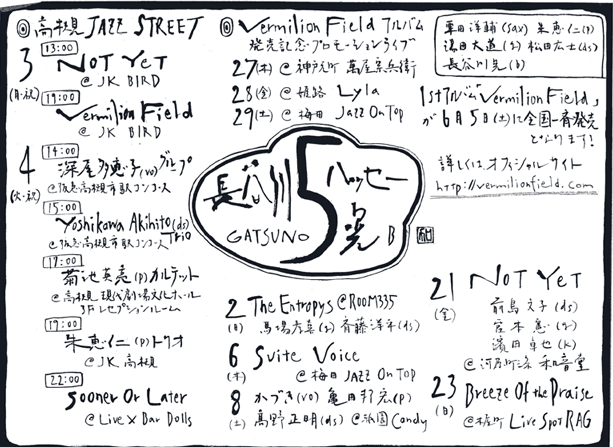 ◎高槻 JAZZ STREET
3
(月・祝)
13:00
NOT YET
@ JK BIRD
19:00
Vermilion Field
@ JK BIRD
4
(火・祝)
14:00
深尾多恵子(vo)グループ
@阪急高槻市駅コンコース
15:00
Yoshikawa Akihito(ds)
Trio
@阪急高槻市駅コンコース
17:00
菊池英恵(p)カルテット
@高槻現代劇場文化ホール
3Fレセプションルーム
19:00
朱恵仁(p)トリオ
@JK高槻
22:00
Sooner Or Later
@Live×Bar Dolls
◎Vermilion Field アルバム
発売記念・プロモーションライブ
27(木) @神戸元町 萬屋宗兵衛
28(金) @姫路 Lyla
29(土) @梅田 Jazz On Top
粟田洋輔(sax) 朱恵仁(p)
湯田大道(g) 松田広士(ds)
長谷川晃(b)
1stアルバム「Vermilion Field」
が6月5日(土)に全国一斉発売
となります!
詳しくは、オフィシャルサイト
http://vermilionfield.com
長谷川
5
ハッセー
晃
GATSUNO
B
2 The Entropys @ROOM335
(日) 馬場孝喜(g) 斉藤洋平(ds)
6 Suite Voice
(木) @梅田 JAZZ ON TOP
8 かづき(vo) 亀田邦宏(p)
(土) 高野正明(ds) @祇園 Candy
21 NOT YET
(金)
前島文子(ds)
宮本憲(g)
濱田卓也(k)
@河原町二条 和音堂
23 Breeze Of the Praise
(日) @木屋町 Live Spot RAG